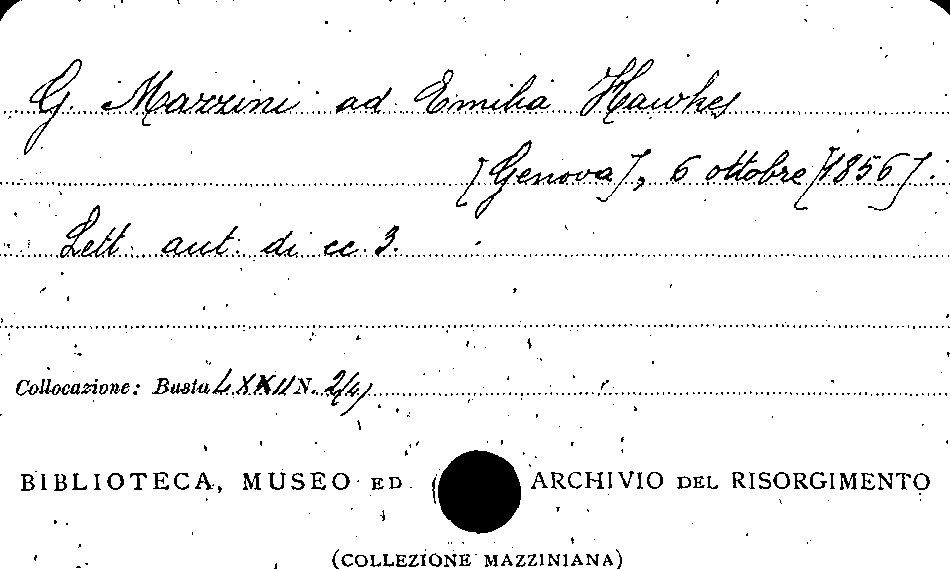 G. Mazzini ad Emilia Hawkes
[Genova], 6 ottobre [1856].
Lett. aut. di cc. 3.
Collocazione: Busta LXXII N. 2(4)
BIBLIOTECA, MUSEO ED ARCHIVIO DEL RISORGIMENTO
(COLLEZIONE MAZZINIANA)